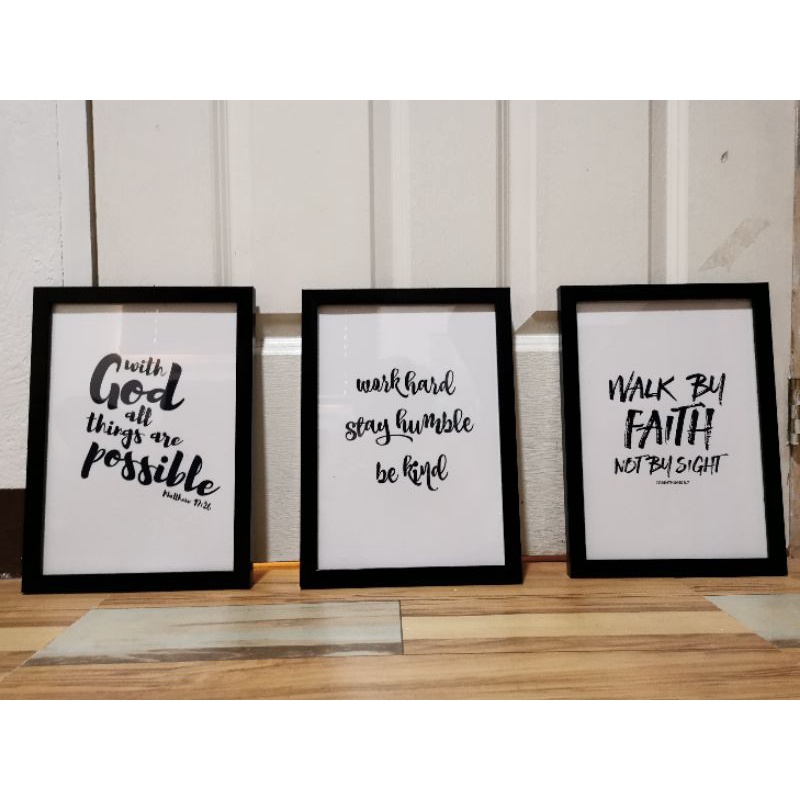 with
God
all
things are
possible
Matthew 19:26
work hard
stay humble
be kind
WALK BY
FAITH
NOT BY SIGHT